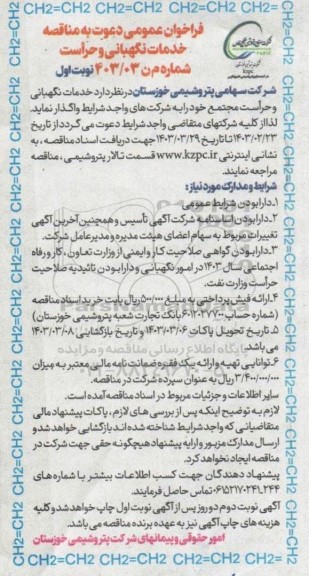 فراخوان عمومی دعوت به مناقصه
خدمات نگهبانی و حراست
شماره م ن ۴۰۳/۰۳ نوبت اول
kzpc
شرکت سهامی پتروشیمی خوزستان در نظر دارد خدمات نگهبانی
و حراست مجتمع خود را به شرکت های واجد شرایط واگذار نماید.
لذا از کلیه شرکتهای متقاضی واجد شرایط دعوت می گردد از تاریخ
۱۴۰۳/۰۲/۲۳ تا تاریخ ۱۴۰۳/۰۳/۲۹ جهت دریافت اسناد مناقصه ، به
نشانی اینترنتی www.kzpc.ir قسمت تالار پتروشیمی ، مناقصه
مراجعه نمایند.
شرایط و مدارک مورد نیاز :
۱.دارا بودن شرایط عمومی
۲.دارا بودن اساسنامه شرکت آگهی تأسیس و همچنین آخرین آگهی
تغییرات مربوط به سهام اعضای هیئت مدیره و مدیرعامل شرکت.
۳.دارا بودن گواهی صلاحیت کار و ایمنی از وزارت تعاون ، کار و رفاه
اجتماعی سال ۱۴۰۳ در امور نگهبانی و دارا بودن تائیدیه صلاحیت
حراست وزارت نفت.
۴.ارائه فیش پرداختی به مبلغ ۵۰۰/۰۰۰ ریال بابت خرید اسناد مناقصه
(شماره حساب ۶۰۱۲۰۳۷۷۰۰ بانک تجارت شعبه پتروشیمی خوزستان)
۵. تاریخ تحویل پاکات ۱۴۰۳/۰۳/۰۶ و تاریخ بازگشایی ۱۴۰۳/۰۳/۰۸
می باشد.
۶.توانایی تهیه و ارائه یک فقره ضمانت نامه مالی معتبر به میزان
۳/۴۰۰/۰۰۰/۰۰۰ ریال به عنوان سپرده شرکت در مناقصه.
سایر اطلاعات و جزئیات مربوط در اسناد مناقصه آمده است.
لازم به توضیح اینکه پس از بررسی های لازم ، پاکات پیشنهاد مالی
متقاضیانی که واجد شرایط شناخته شده اند بازگشایی خواهد شد و
ارسال مدارک مزبور و ارایه پیشنهاد هیچگونه حقی جهت شرکت در
مناقصه ایجاد نخواهد کرد.
پیشنهاد دهندگان جهت کسب اطلاعات بیشتر با شماره های
۰۶۱۵۲۱۷۰۲۴۱،۲۴۴ تماس حاصل فرمایند.
آگهی نوبت دوم دو روز پس از آگهی نوبت اول چاپ خواهد شد و کلیه
هزینه های چاپ آگهی نیز به عهده برنده مناقصه می باشد.
امور حقوقی و پیمانهای شرکت پتروشیمی خوزستان